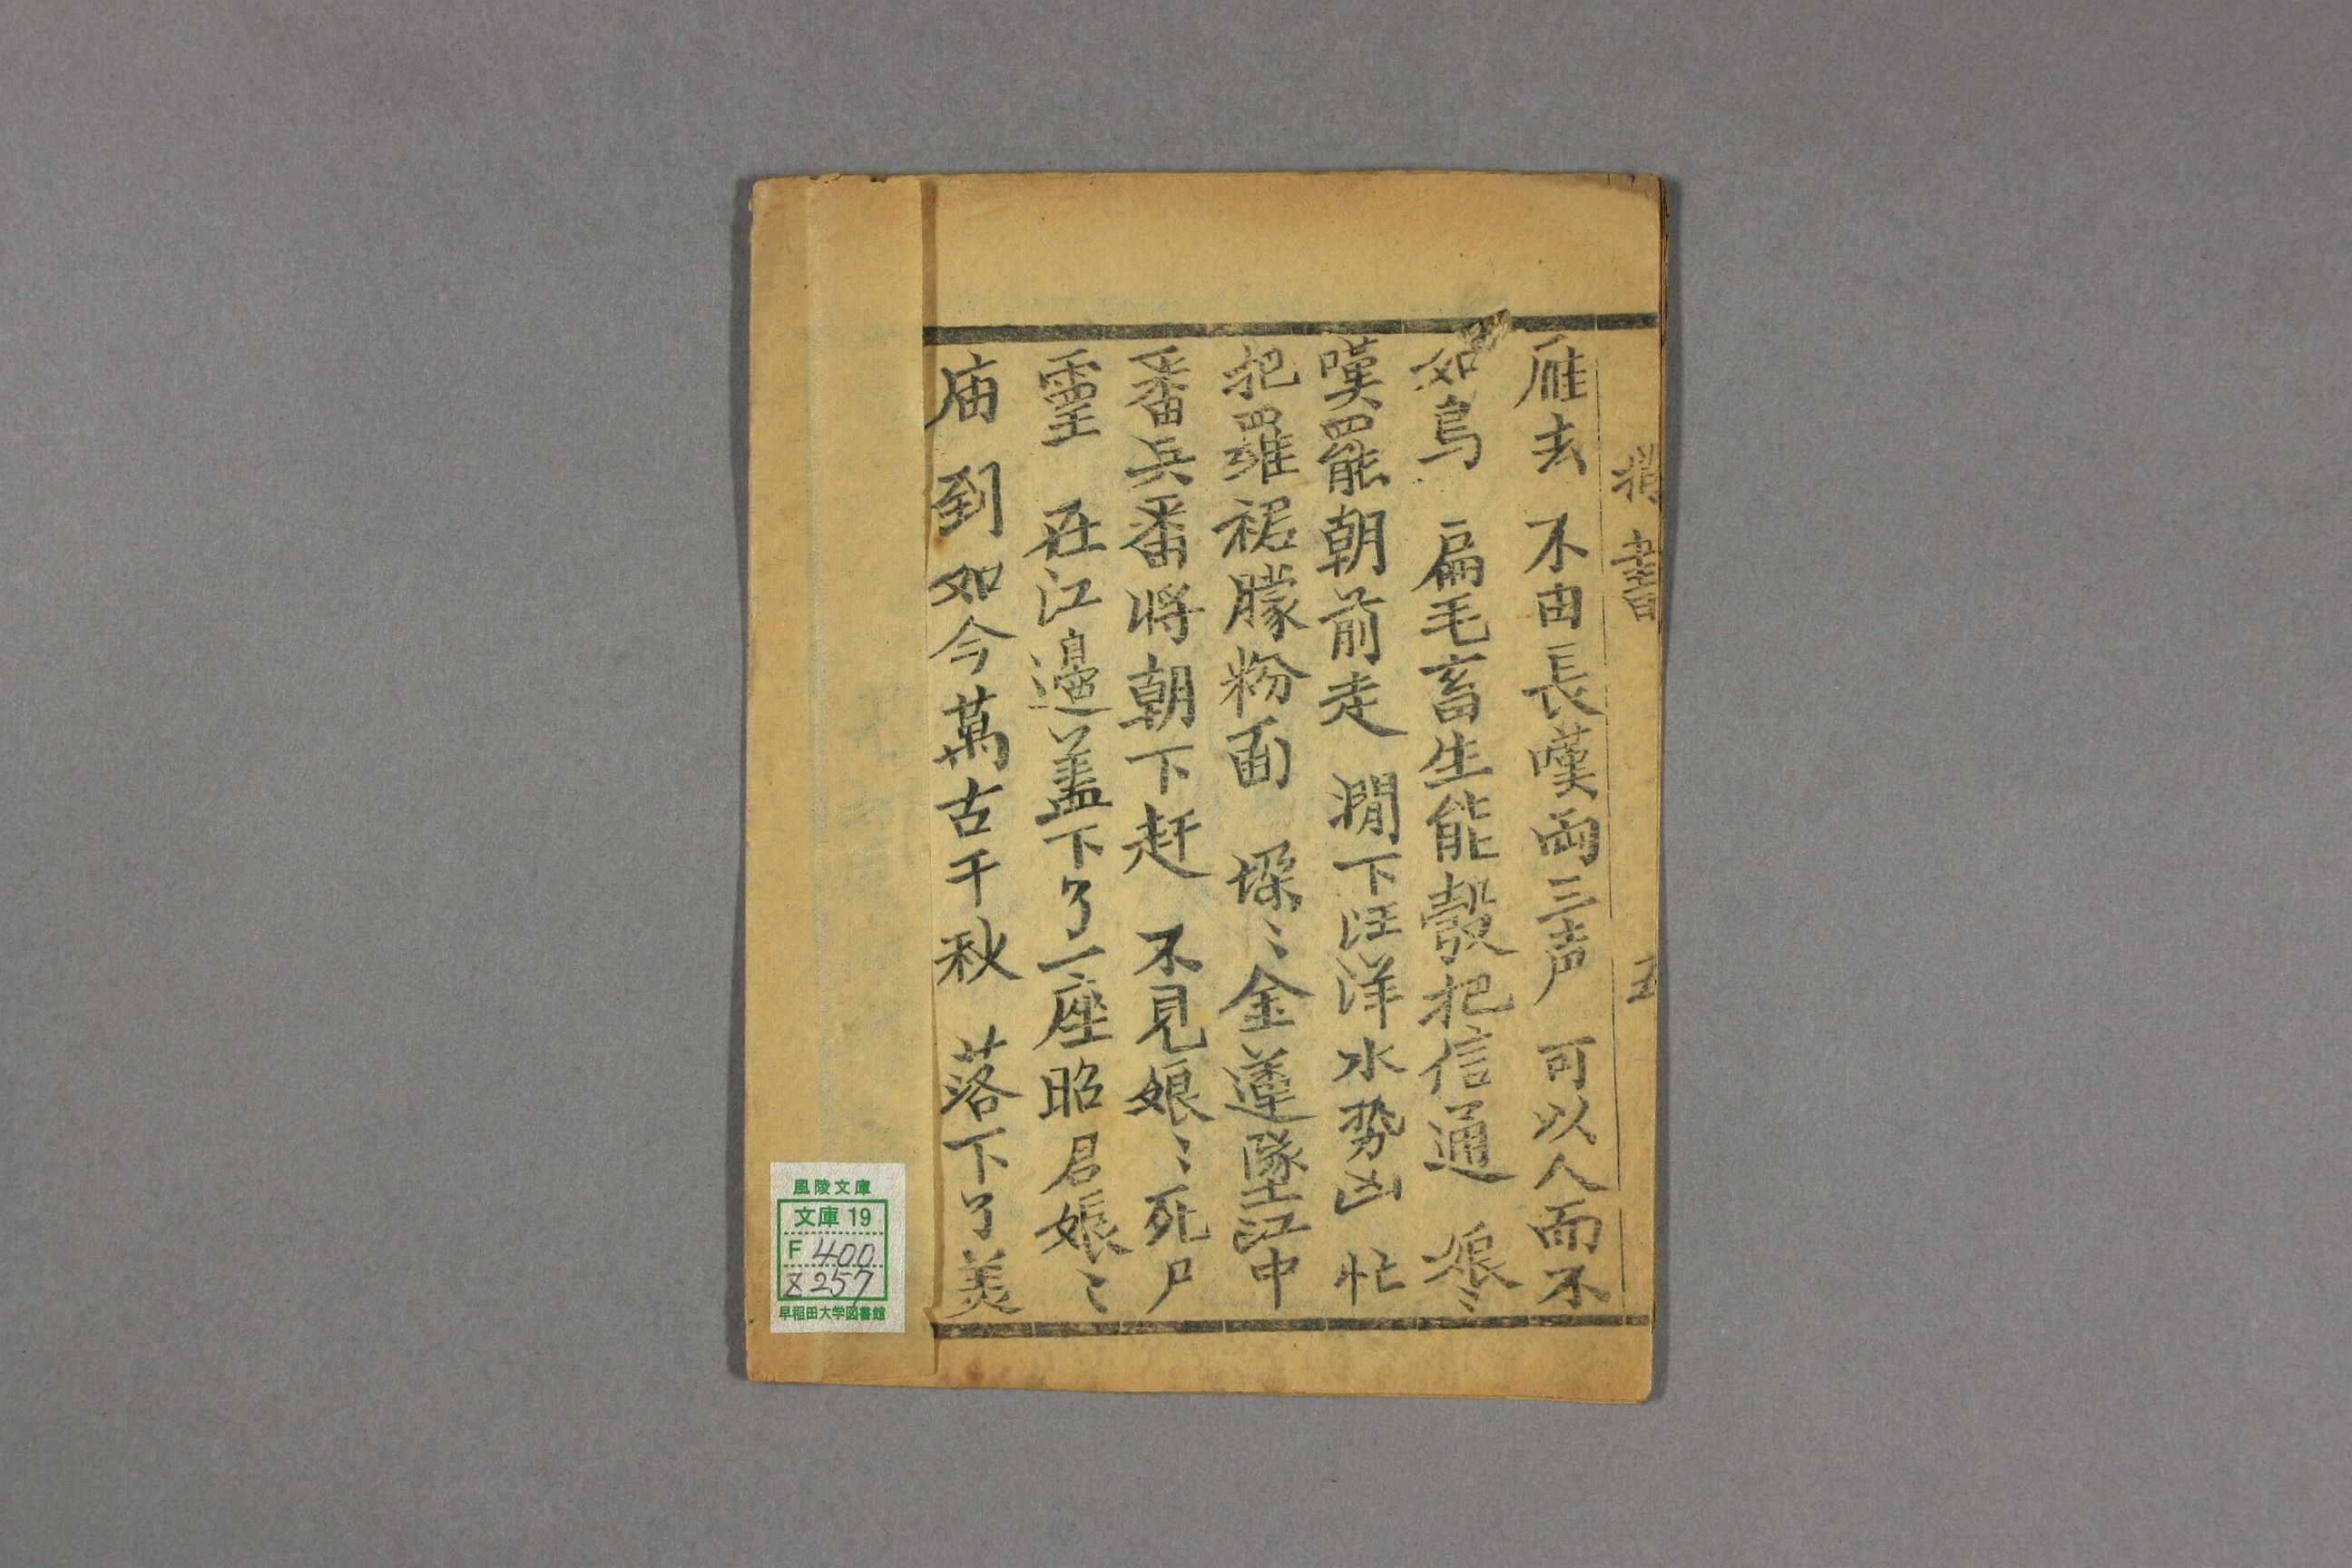 捎書 五
雁去 不由長嘆両三声 可以人而不
如鳥 扁毛畜生能彀把信通 娘〻
嘆罷朝前走 澗下汪洋水势凶 忙
把羅裙朦粉面 垜〻金蓮墜江中
番兵番将朝下赶 不見娘〻死尸
霊 在江邉盖下了一座昭君娘〻
庙 到如今萬古千秋 落下了美
風陵文庫
文庫 19
F 400
Z 257
早稲田大学図書館